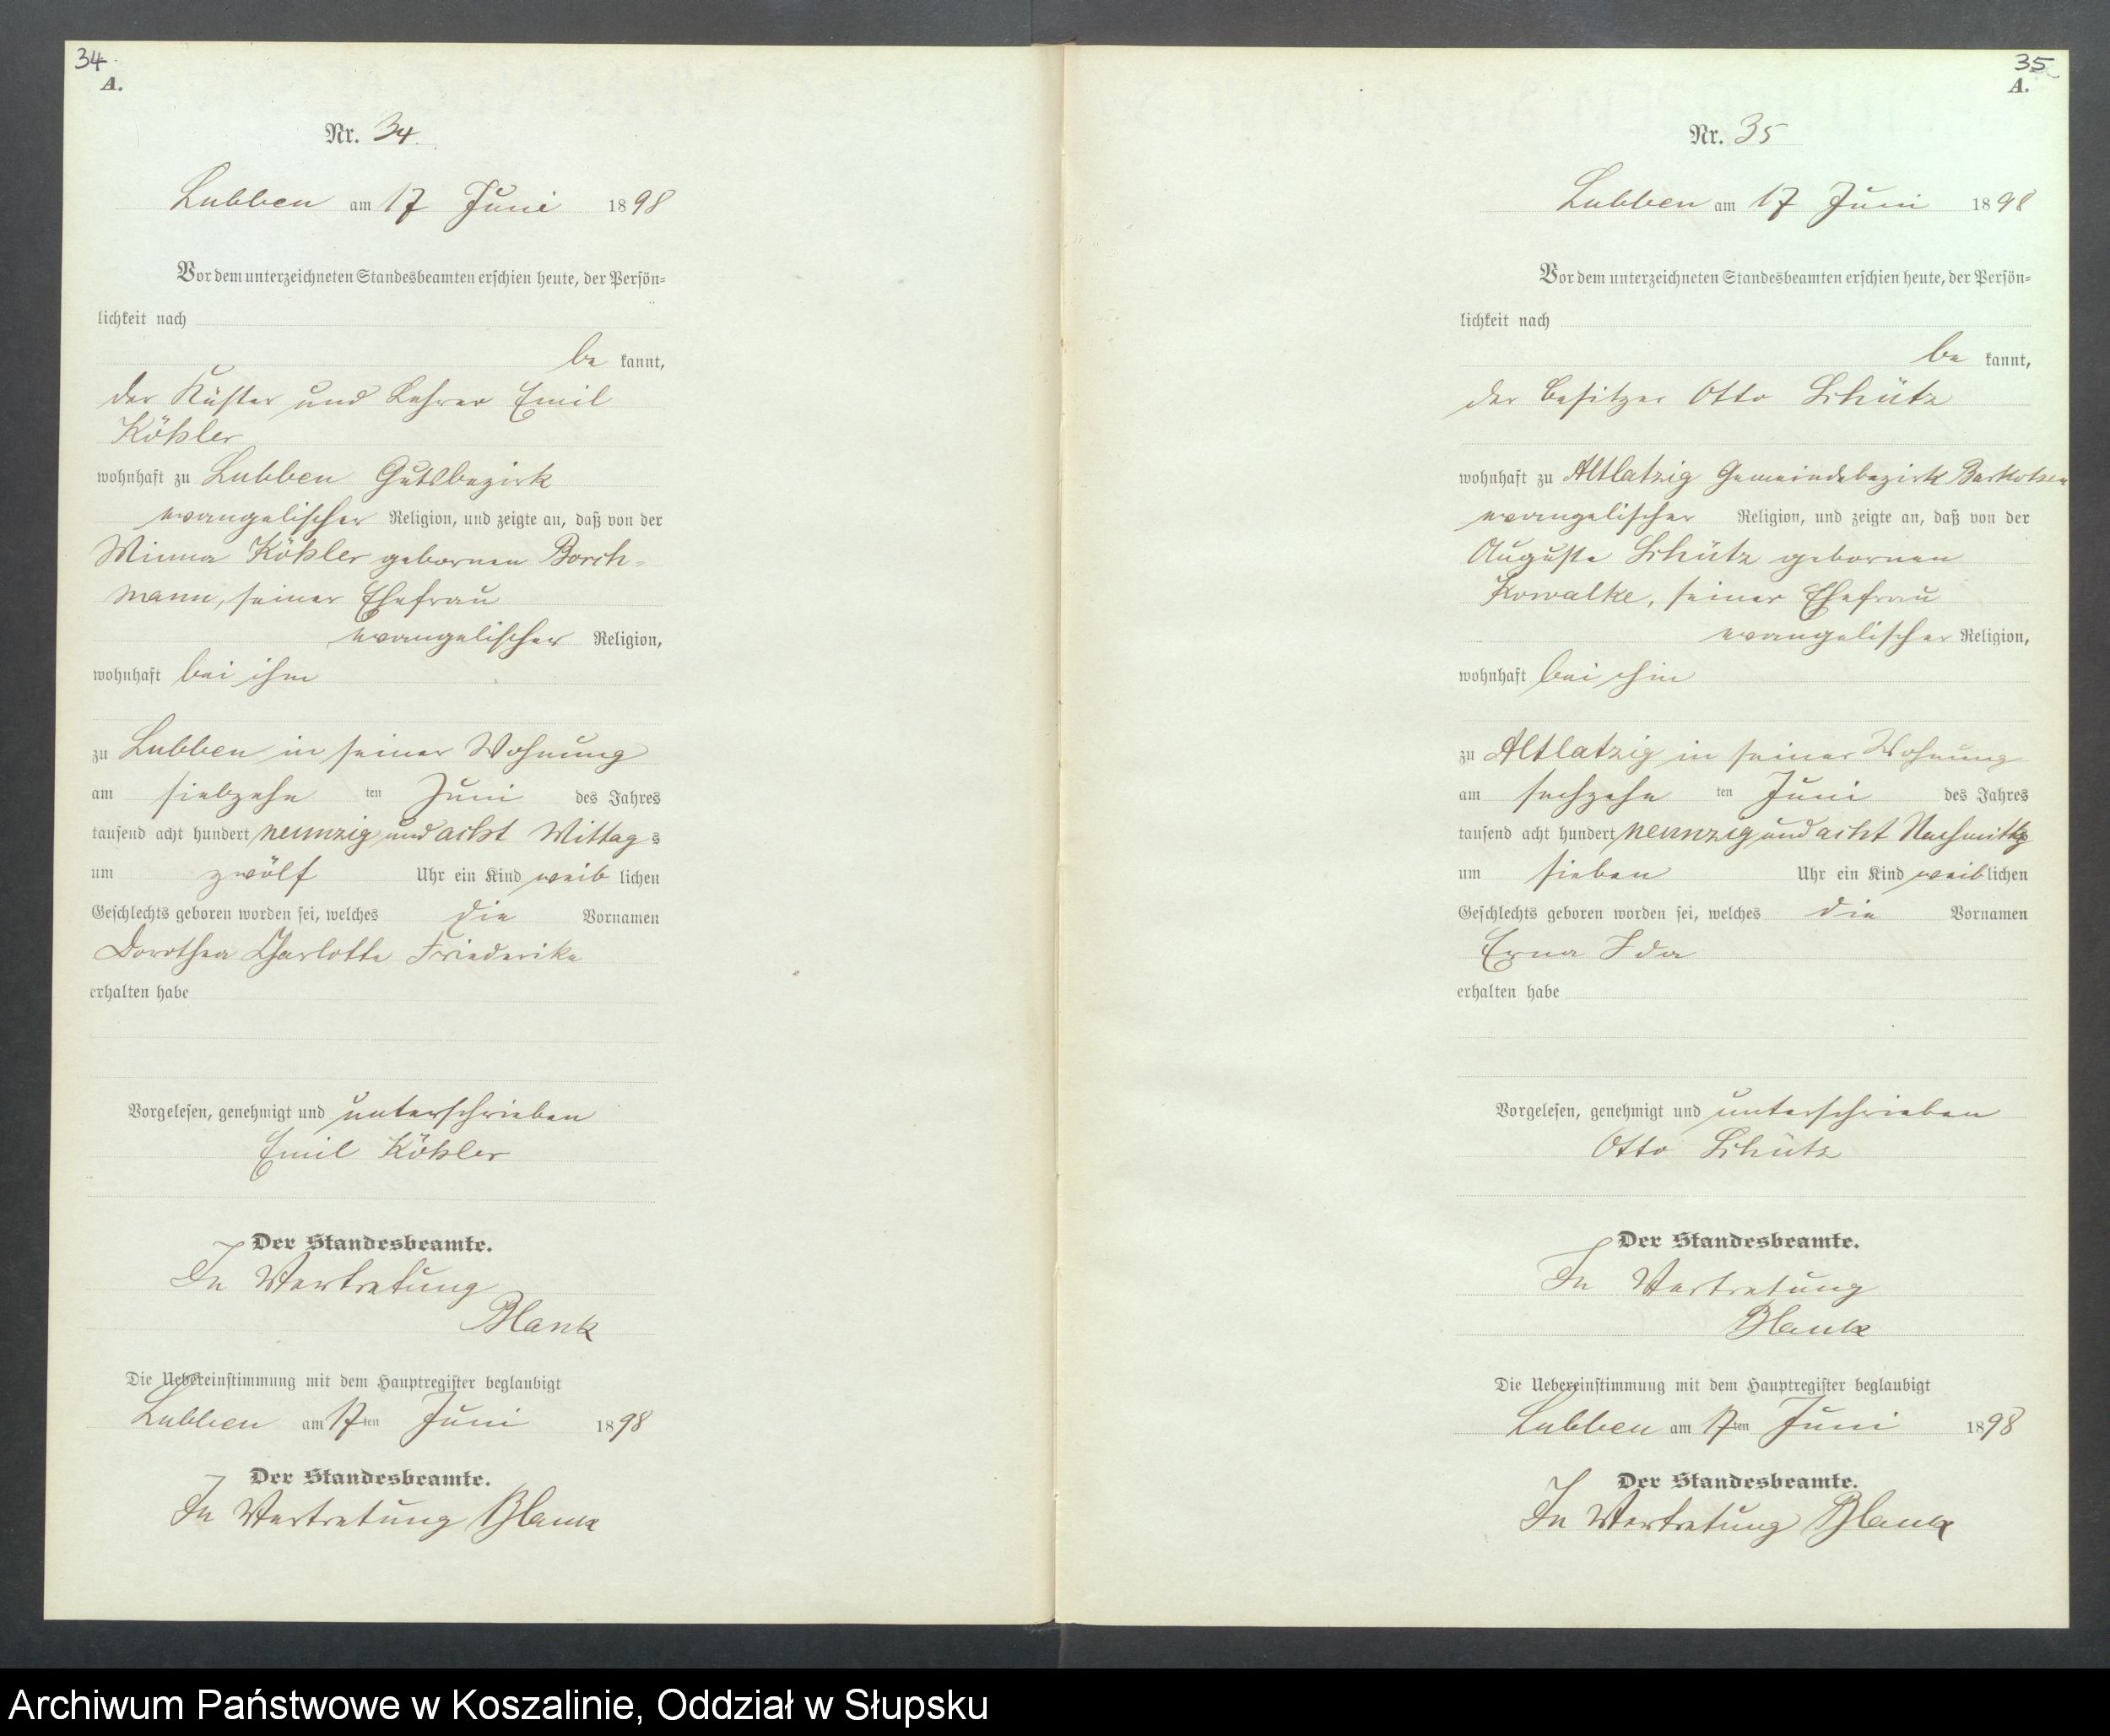 34.
A.
Nr. 34.
Lubben am 17 Juni 1898
Vor dem unterzeichneten Standesbeamten erschien heute, der Persön=
lichkeit nach
be kannt,
der Küster und Lehrer Emil
Köhler
wohnhaft zu Lubben Gutsbezirk
evangelischer Religion, und zeigte an, daß von der
Minna Köhler gebornen Borch-
mann, seiner Ehefrau
evangelischer Religion,
wohnhaft bei ihm
zu Lubben in seiner Wohnung
am siebzehn ten Juni des Jahres
tausend acht hundert neunzig und acht Mittags
um zwölf Uhr ein Kind weib lichen
Geschlechts geboren worden sei, welches die Vornamen
Dorothea Charlotte Friederike
erhalten habe
Vorgelesen, genehmigt und unterschrieben
Emil Köhler
Der Standesbeamte.
In Vertretung
Blank
Die Uebereinstimmung mit dem Hauptregister beglaubigt
Lubben am 17ten Juni 1898
Der Standesbeamte.
In Vertretung Blank
35
A.
Nr. 35
Lubben am 17 Juni 1898
Vor dem unterzeichneten Standesbeamten erschien heute, der Persön=
lichkeit nach
be kannt,
der Besitzer Otto Schütz
wohnhaft zu Altlatzig Gemeindebezirk Barkotzen
evangelischer Religion, und zeigte an, daß von der
Auguste Schütz gebornen
Kowalke, seiner Ehefrau
evangelischer Religion,
wohnhaft bei ihm
zu Altlatzig in seiner Wohnung
am sechzehn ten Juni des Jahres
tausend acht hundert neunzig und acht Nachmittgs
um sieben Uhr ein Kind weib lichen
Geschlechts geboren worden sei, welches die Vornamen
Erna Ida
erhalten habe
Vorgelesen, genehmigt und unterschrieben
Otto Schütz
Der Standesbeamte.
In Vertretung
Blank
Die Uebereinstimmung mit dem Hauptregister beglaubigt
Lubben am 17ten Juni 1898
Der Standesbeamte.
In Vertretung Blank
Archiwum Państwowe w Koszalinie, Oddział w Słupsku